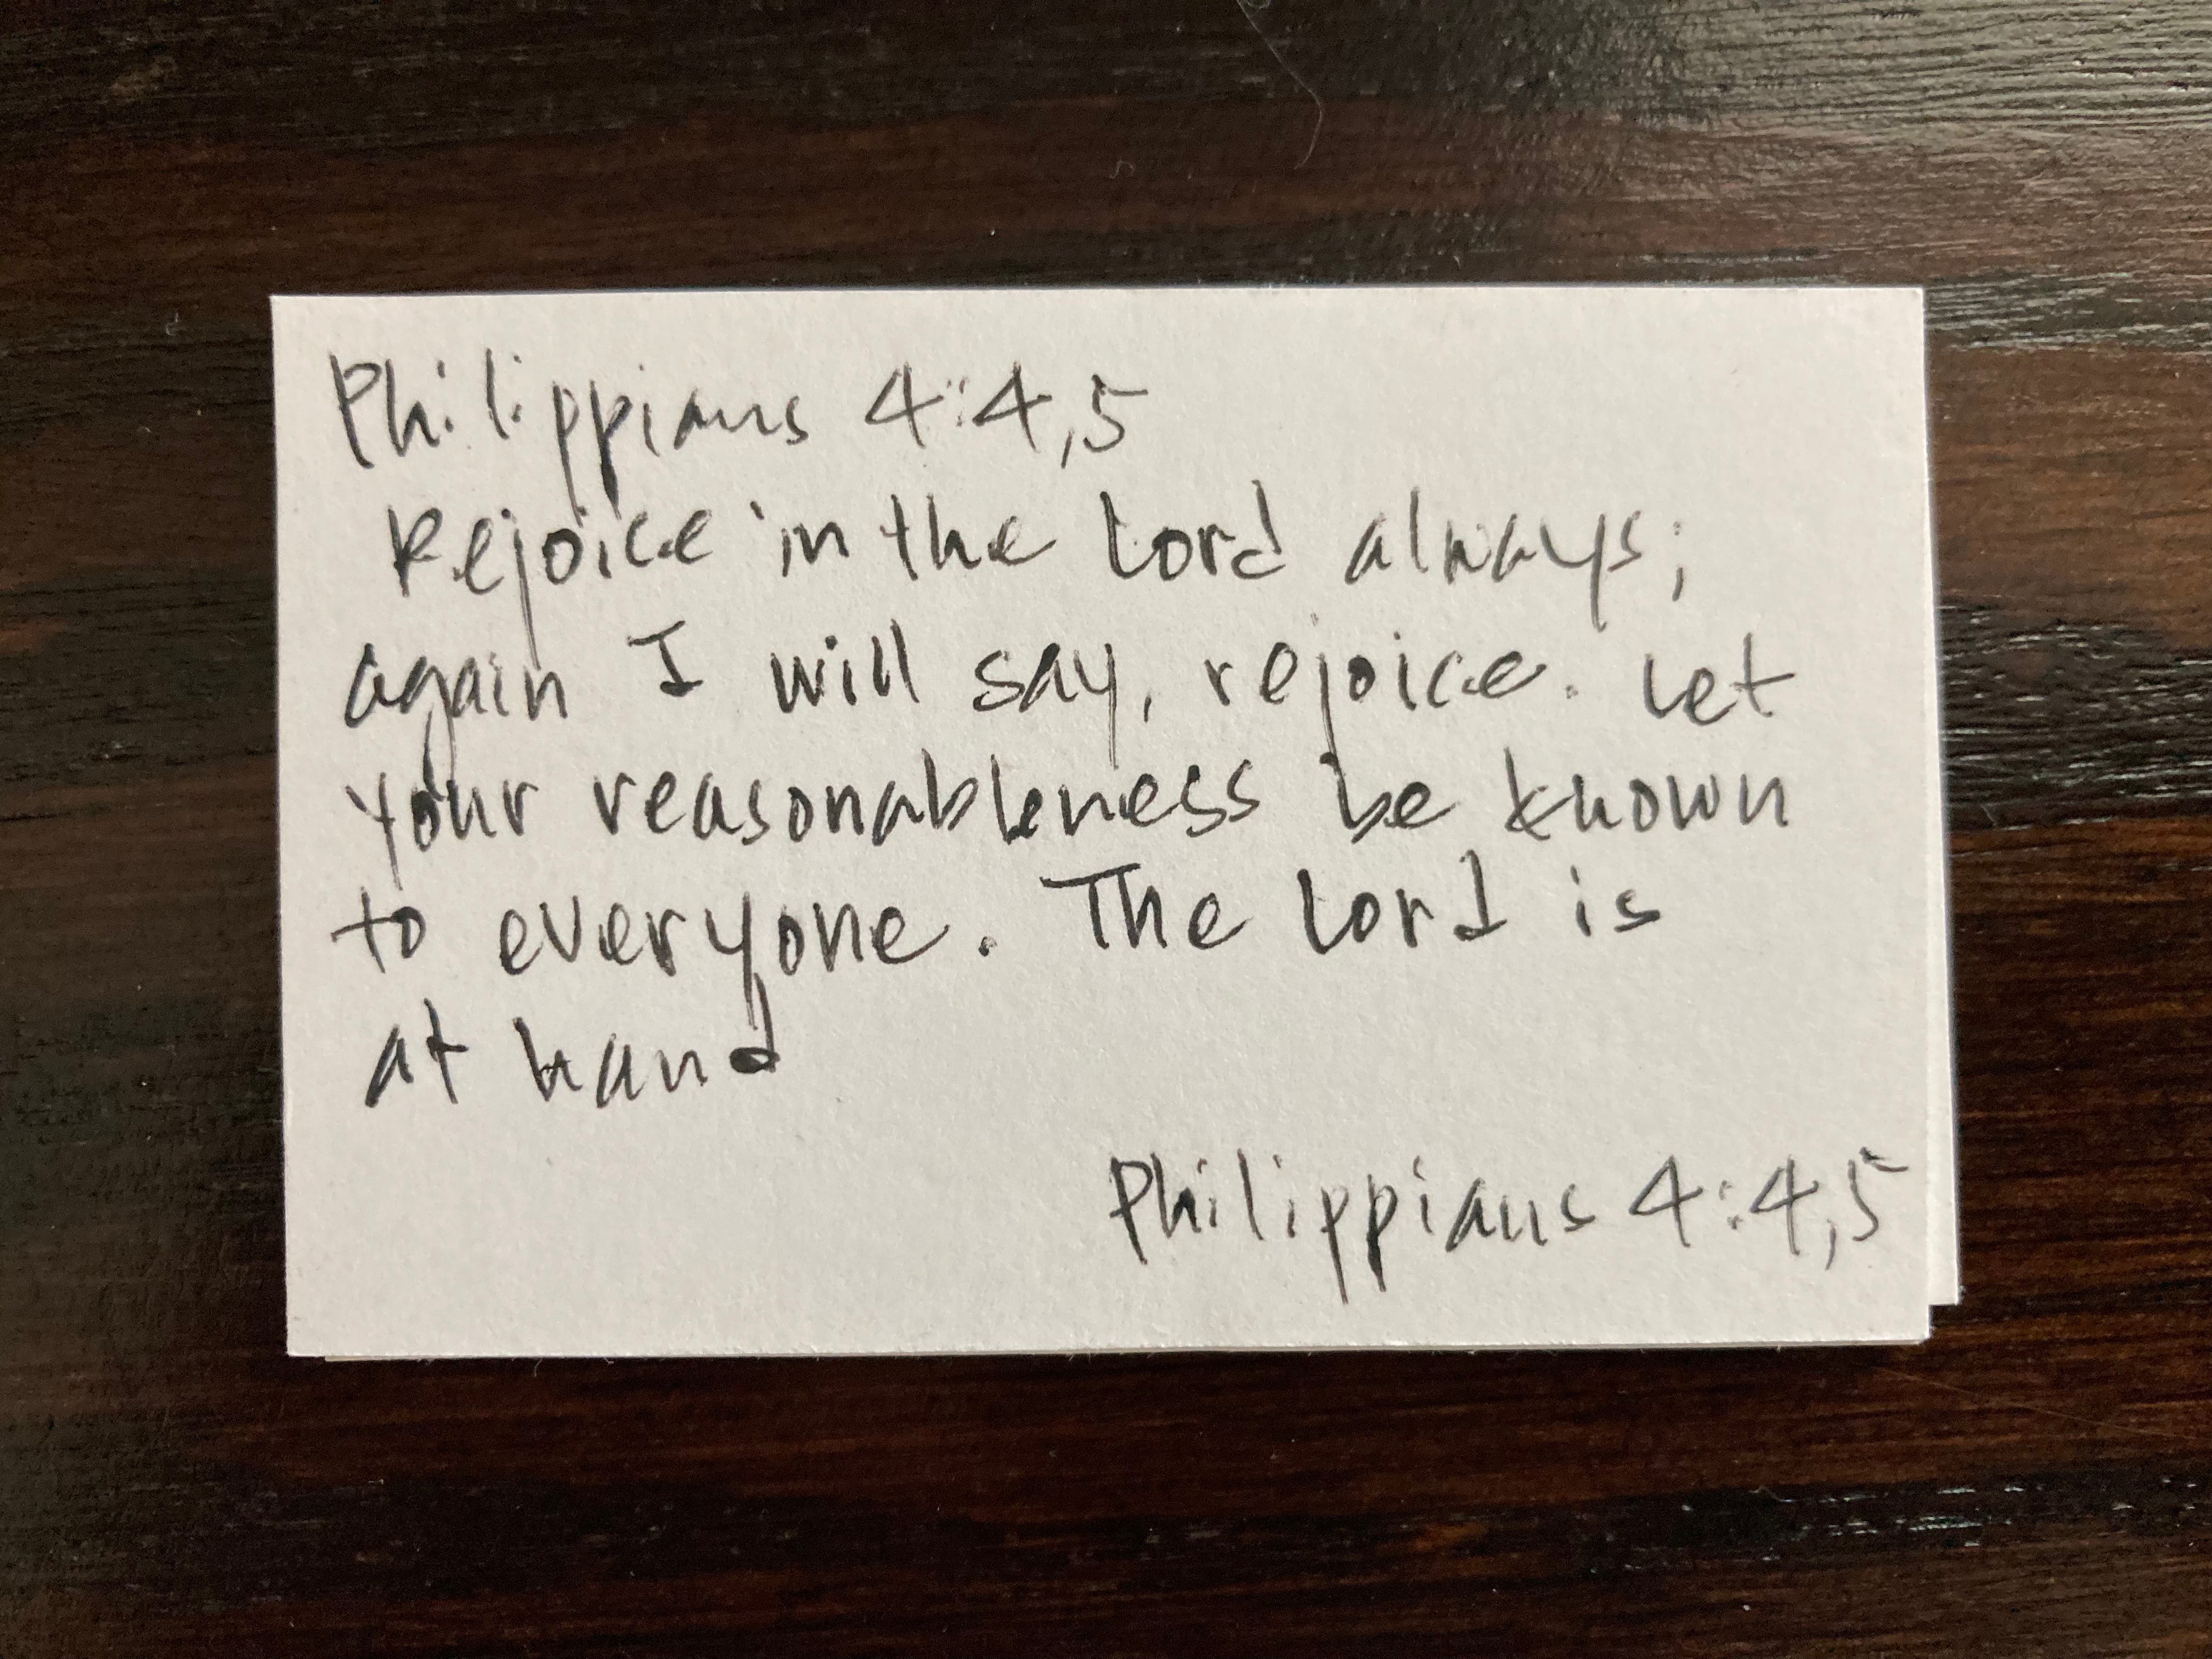 Philippians 4:4,5
Rejoice in the Lord always;
again I will say, rejoice. Let
your reasonableness be known
to everyone. The Lord is
at hand
Philippians 4:4,5